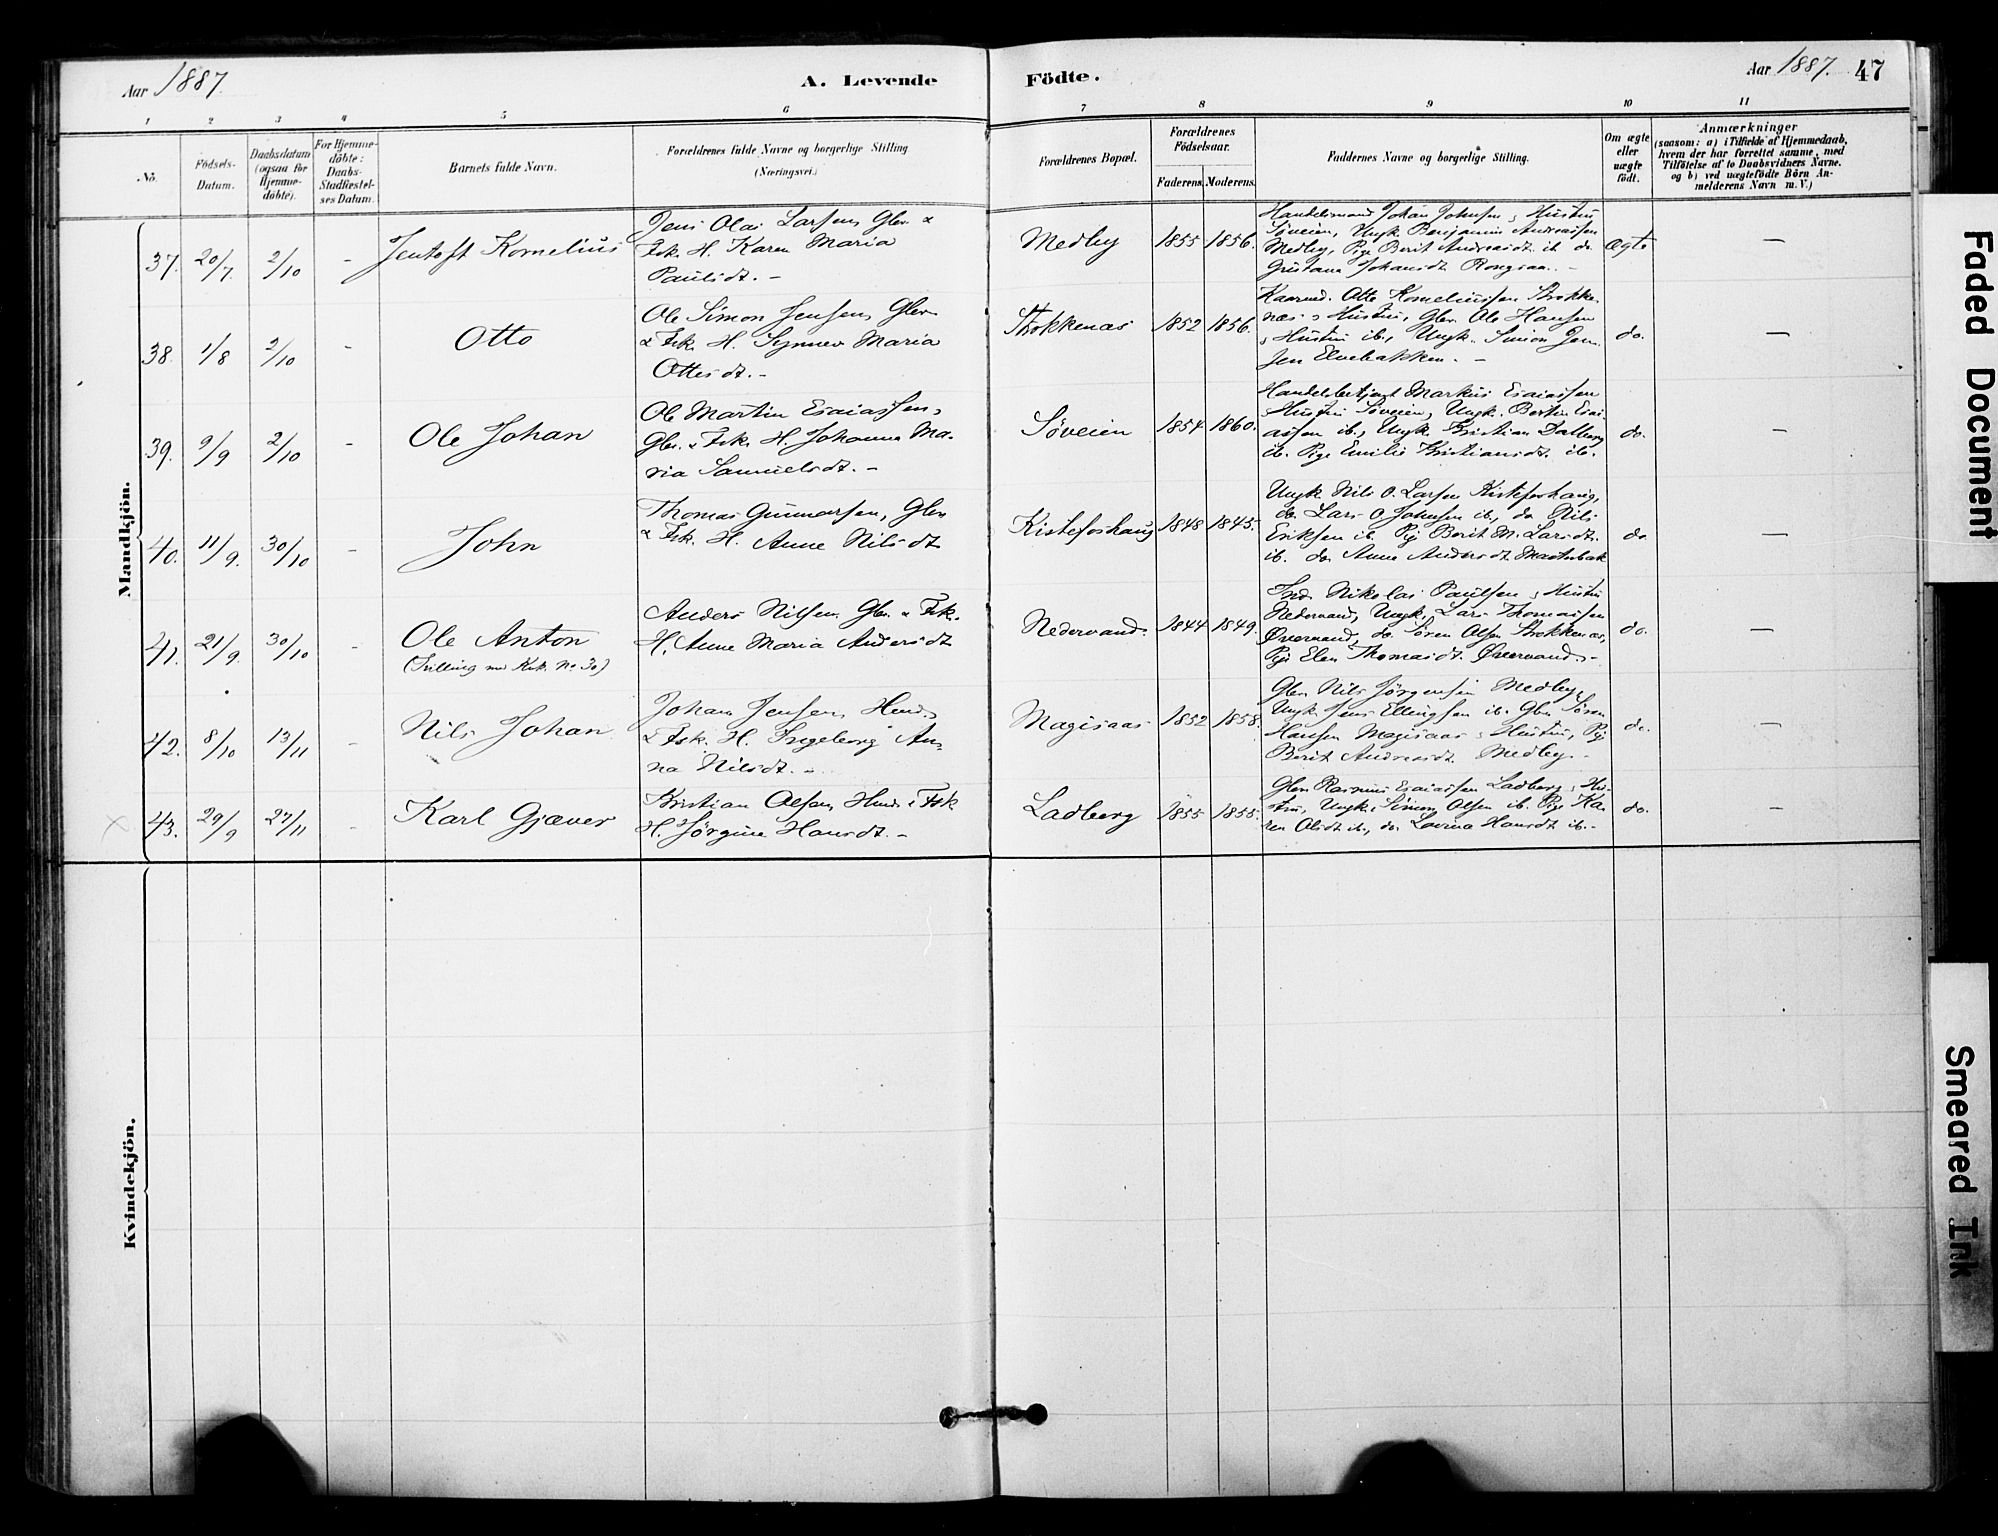 Aar 1887.
A. Levende
Födte.
Aar 1887.
47
1 2 3 4 5 6 7 8 9 10 11
No.
Födsels-
Datum.
Daabsdatum
(ogsaa for
Hjemme-
döbte).
For Hjemme-
döbte:
Daabs-
Stadfæstel-
ses Datum.
Barnets fulde Navn.
Forældrenes fulde Navne og borgerlige Stilling
(Næringsvei.)
Forældrenes Bopæl.
Forældrenes
Födselsaar.
Faderens.
Moderens.
Faddernes Navne og borgerlige Stilling.
Om ægte
eller
uægte
födt.
Anmærkninger
(saasom: a) i Tilfælde af Hjemmedaab,
hvem der har forrettet samme, med
Tilföielse af to Daabsvidners Navne.
og b) ved uægtefödte Börn An-
melderens Navn m. V.)
Mandkjön.
37. 20/7. 2/10 - Jentoft Kornelius
Jens Olai Larsen, Gbr. &
Fsk. H. Karen Maria
Paulsdt. -
Medby 1855 1856.
Handelsmand Johan Johnsen & Hustru
Söveien, Ungk. Benjamin Andreassen
Medby, Pige Berit Andreasdt. ib. do.
Gustava Johansdt.
ægte
-
38. 1/8 2/10 - Otto
Ole Simon Jensen, Gbr.
& Fsk. H. Synnev Maria
Ottesdt. -
Stokkenæs 1852 1856.
Kaarmd. Otto Korneliussen Stokke-
næs & Hustru, Gbr. Ole Hansen
& Hustru ib., Ungk. Simon Jen-
sen Elvebakken. -
do.
-
39. 9/9 2/10 - Ole Johan
Ole Martin Esaiassen,
Gbr. & Fsk. H. Johanna Ma-
ria Samuelsdt. -
Söveien 1854 1860.
Handelsbetjent Markus Esaiassen
& Hustru Söveien, Ungk. Bertin Esai-
assen ib., Ungk. Kristian Dalberg
ib. Pige Emilie Kristiansdt. ib.
do.
-
40. 11/9. 30/10 - John
Thomas Gunnarsen, Gbr.
& Fsk. H. Anne Nilsdt
Kistefoshaug 1848 1845.
Ungk. Nils O. Larsen Kistefoshaug,
do. Lars O. Johnsen ib., do Nils
Eriksen ib. Pig. Berit M. Larsdt.
ib. do Anne Andersdt
do
-
41. 21/9. 30/10 - Ole Anton
(Tvilling m. Kvk. No 30)
Anders Nilsen Gbr. & Fsk.
H. Anne Maria Andersdt
Nedervand. 1844 1849.
Nikolai Paulsen & Hustru
Nedervand, Ungk. Lars Thomassen
Övervand, do. Sören Olsen Stokkenæs,
Pige Elen Thomasdt. Övervand. -
do.
-
42. 8/10 13/11 - Nils Johan
Johan Jensen, Huusm.
& Fsk. H. Ingeborg An-
na Nilsdt. -
Magisaas 1852 1858.
Gbr. Nils Jörgensen Medby,
Ungk. Jens Ellingsen ib. Gbr. Sören
Hansen Magisaas & Hustru, Pig.
Berit Andreasdt. Medby. -
do.
-
43. 29/9 27/11 - Karl Gjæver
Kristian Olsen, & Fsk
H. Jörgine Hansdt. -
Ladberg 1855 1855.
Gbr. Rasmus Esaiassen Ladberg & Hu-
stru, Ungk. Simon Olsen ib. Pige Ka-
ren Olsdt ib., do. Lovina Hansdt ib. -
do.
-
Kvindekjön.
Faded Document
Smeared Ink